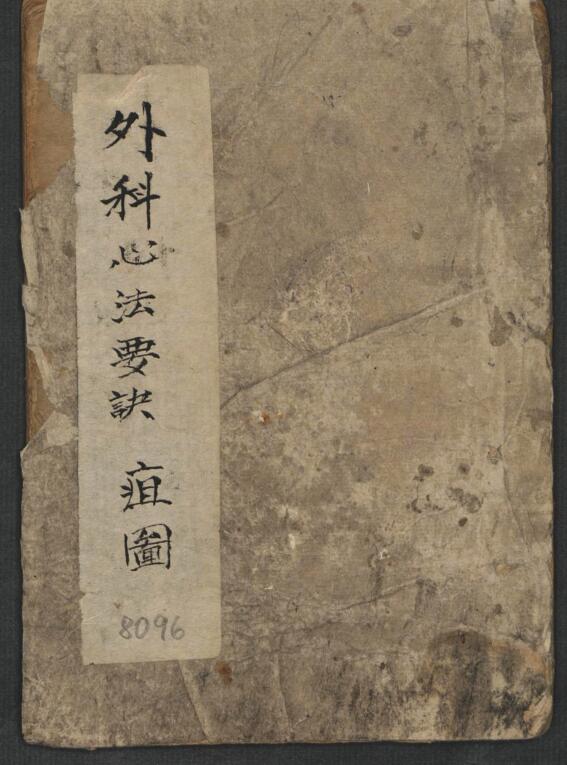 外科心法要訣 疽圖
8096